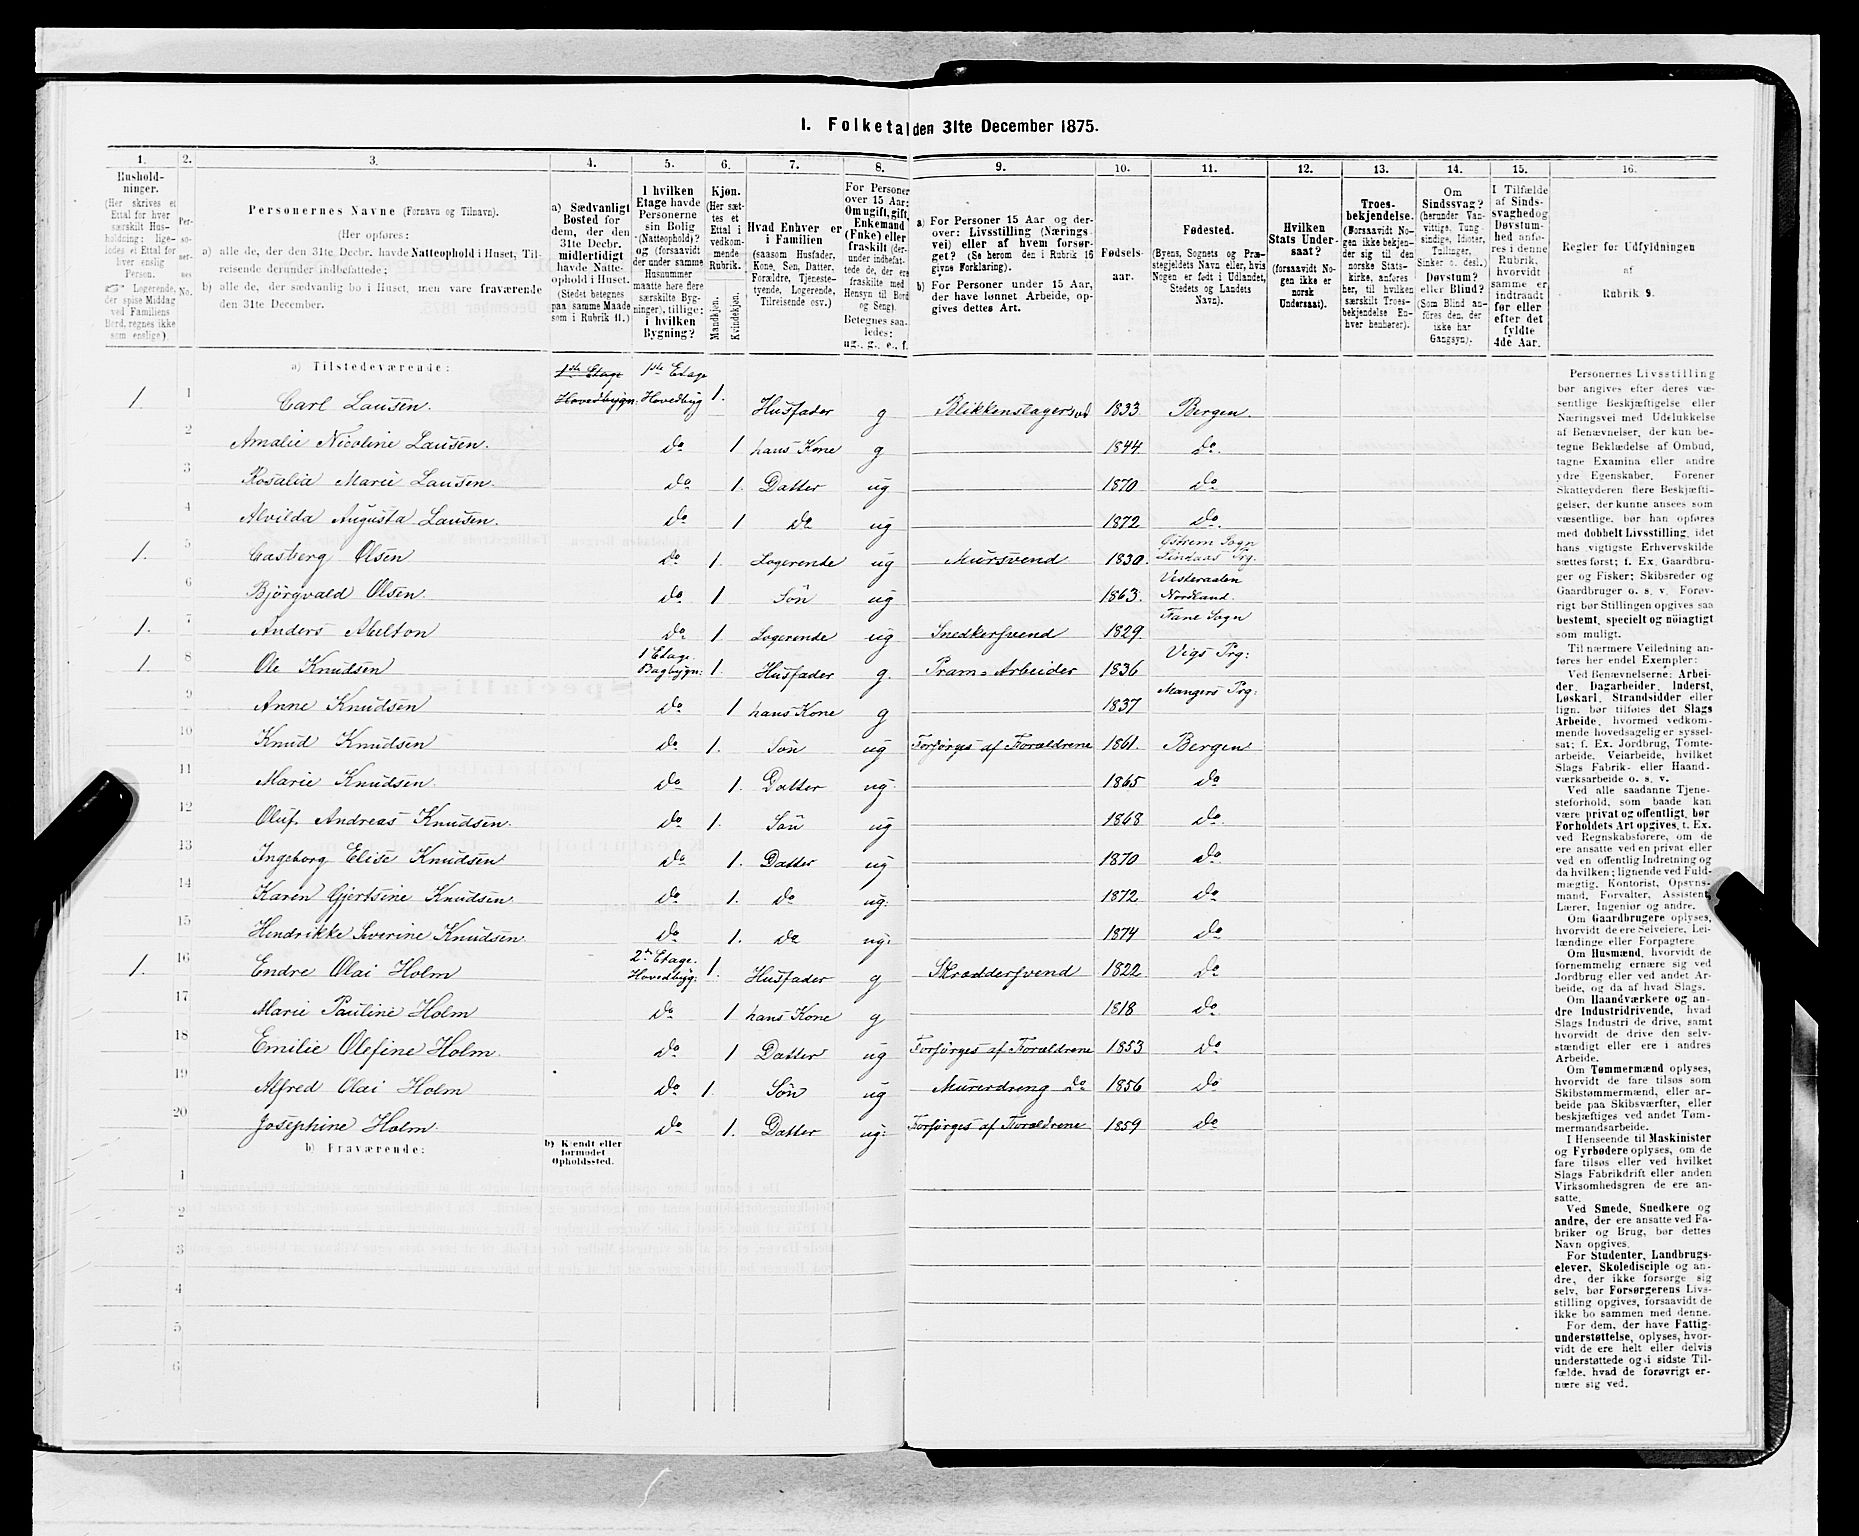 1. Folketal den 31te December 1875.
1. 2. 3. 4. 5. 6. 7. 8. 9. 10. 11. 12. 13. 14. 15. 16.
Husholdninger.
(Her skrives et
Ettal for hver
særskilt Husholdning;
ligeledes et Ettal for
hver enslig
Person.
Logerende,
der spise Middag
ved Familiens
Bord, regnes ikke
som enslige).
Personernes No.
Personernes Navne (Fornavn og Tilnavn).
(Her opføres:
a) alle de, der den 31te Decbr. havde Natteophold i Huset, Tilreisende
derunder indbefattede;
b) alle de, der sædvanlig bo i Huset, men vare fraværende
den 31te December.
a) Sædvanligt
Bosted for
dem, der den
31te Decbr.
midlertidigt
havde Natteophold
i Huset.
(Stedet betegnes
paa samme Maade
som i Rubrik 11.)
I hvilken
Etage havde
Personerne
sin Bolig
(Natteophold)?
og (forsaavidt
der under samme
Husnummer
maatte høre flere
særskilte Bygninger),
tillige:
i hvilken
Bygning?
Kjøn.
(Her sættes
et
Ettal i
vedkommende
Rubrik.)
Mandkjøn.
Kvindekjøn.
Hvad Enhver er
i Familien
(saasom Husfader,
Kone, Søn, Datter,
Forældre, Tjenestetyende,
Logerende,
Tilreisende osv.)
For Personer
over 15 Aar:
Om ugift, gift,
Enkemand
(Enke) eller
fraskilt (derunder
indbefattede
de, der ere
fraskilte med
Hensyn til Bord
og Seng)
Betegnes saaledes:
ug., g., e., f.
a) For Personer 15 Aar og derover:
Livsstilling (Næringsvei)
eller af hvem forsørget?
(Se herom den i Rubrik 16
givne Forklaring).
b) For Personer under 15 Aar,
der have lønnet Arbeide, opgives
dettes Art.
Fødselsaar.
Fødested.
(Byens, Sognets og Præstegjeldets
Navn eller, hvis
Nogen er født i Udlandet,
Stedets og Landets
Navn).
Hvilken
Stats Undersaat?
(forsaavidt Nogen
ikke er
norsk
Undersaat).
Troesbekjendelse.
(Forsaavidt Nogen
ikke bekjender
sig til den
norske Statskirke,
anføres
her, til hvilken
særskilt Troesbekjendelse
Enhver
henhører).
Om
Sindssvag?
(herunder Vanvittige,
Tungsindige,
Idioter,
Tullinger,
Sinker o. desl.)
Døvstum?
eller Blind?
(Som Blind anføres
den, der
ikke har
Gangsyn).
I Tilfælde
af Sindssvaghed
og
Døvstumhed
anføres
i denne
Rubrik,
hvorvidt
samme er
indtraadt
før eller
efter det
fyldte
4de Aar.
Regler for Udfyldningen
af
Rubrik 9.
a) Tilstedeværende:
1ste Etage 1ste Etage
1. 1 Carl Lausen. Hovedbygn: Hovedbyg 1. Husfader g Blikkenslagersvd 1833 Bergen.
2 Amalie Nicoline Lausen. do 1 hans Kone g 1844 do
3 Rosalia Marie Lausen. do 1. Datter ug 1870 do
4 Alvilda Augusta Lausen. do 1 do ug 1872 do
1. 5 Casberg Olsen do 1. Logerende ug Mursvend 1830 Ostrem Sogn Lindaas Prg.
6 Björgvald Olsen. do 1 Sön ug 1863. Vesteraalen Nordland.
1. 7 Anders Melton do 1 Logerende ug Snedkersvend 1829 Fane Sogn
1 8 Ole Knudsen 1 Etage. Bagbygn: 1. Husfader g. Pram-Arbeider 1836 Vigs Prg:
9 Anne Knudsen do 1 hans Kone g 1837 Mangers Prg:
10 Knud Knudsen do 1. Sön ug Forsörges af Forældrene 1861. Bergen
11 Marie Knudsen. do 1. Datter ug. 1865 do
12 Oluf Andreas Knudsen. do 1. Sön ug 1868 do
13 Ingeborg Elise Knudsen do 1. Datter ug 1870 do
14 Karen Gjertsine Knudsen do 1. do ug. 1872 do
15 Hendrikke Severine Knudsen. do 1. do ug. 1874 do
1. 16 Endre Olai Holm 2den Etage. Hovedbyg. 1. Husfader g Skræddersvend 1822 do
17 Marie Pauline Holm do 1 hans Kone g 1818 do
18 Emilie Olefine Holm. do 1 Datter ug Forsörges af Forældrene 1853 do
19 Alfred Olai Holm do 1. Sön ug Murerdreng do 1856 do
20 Josephine Holm. do 1. Datter ug: Forsörges af Forældrene 1859 do
b) Fraværende:
b) Kjendt eller
formodet
Opholdssted.
1
2
3
4
5
6
Personernes Livsstilling
bør angives efter deres væsentlige
Beskjæftigelse eller
Næringsvei med Udelukkelse
af Benævnelser, der kun betegne
Beklædelse af Ombud,
tagne Examina eller andre
ydre Egenskaber. Forener
Skatteyderen flere Beskjæftigelser,
der kunne ansees som
væsentlige, bør han opføres
med dobbelt Livsstilling, idet
hans vigtigste Erhvervskilde
sættes først; f. Ex. Gaardbruger
og Fisker; Skibsreder og
Gaardbruger o. s. v. Forøvrigt
bør Stillingen opgives saa
bestemt, specielt og nöiagtigt
som muligt.
Til nærmere Veiledning anføres
her endel Exempler:
Ved Benævnelserne: Arbeider,
Dagarbeider, Inderst,
Løskarl, Strandsidder eller
lign. bør tilføies det Slags
Arbeide, hvormed vedkommende
hovedsagelig er sysselsat;
f. Ex. Jordbrug, Tomtearbeide,
Veiarbeide, hvilket
Slags Fabrik- eller Haandværksarbeide
o. s. v.
Ved alle saadanne Tjenesteforhold,
som baade kan
være privat og offentligt, bør
Forholdets Art opgives, t. Ex.
ved Regnskabsførere, om de
ere ansatte ved en privat eller
ved en offentlig Indretning og
da hvilken; lignende ved Fuldmægtig,
Kontorist, Opsynsmand,
Forvalter, Assistent,
Lærer, Ingeniør og andre.
Om Gaardbrugere oplyses,
hvorvidt de ere Selveiere, Leilændinge
eller Forpagtere
Om Husmænd, hvorvidt de
fornemmelig ernære sig ved
Jordbrug eller ved andet Arbeide,
og da af hvad Slags.
Om Haandværkere og andre
Industridrivende, hvad
Slags Industri de drive, samt
hvorvidt de drive den selvstændigt
eller ere i andres
Arbeide.
Om Tømmermænd oplyses,
hvorvidt de fare tilsøs som
Skibstømmermænd, eller arbeide
paa Skibsværfter, eller
beskjæftiges ved andet Tømmermandsarbeide.
I Henseende til Maskinister
og Fyrbødere oplyses, om de
fare tilsøs eller ved hvilket
Slags Fabrikdrift eller anden
Virksomhedsgren de ere ansatte.
Ved Smede, Snedkere og
andre, der ere ansatte ved Fabriker
og Brug, bør dettes
Navn opgives.
For Studenter, Landbrugselever,
Skoledisciple og andre,
der ikke forsørge sig
selv, bør Forsørgerens Livsstilling
opgives, forsaavidt de
ikke bo sammen med denne.
For dem, der have Fattigunderstøttelse,
oplyses, hvorvidt
de ere helt eller delvis
understøttede og i sidste Tilfælde,
hvad de forøvrigt ernære
sig ved.